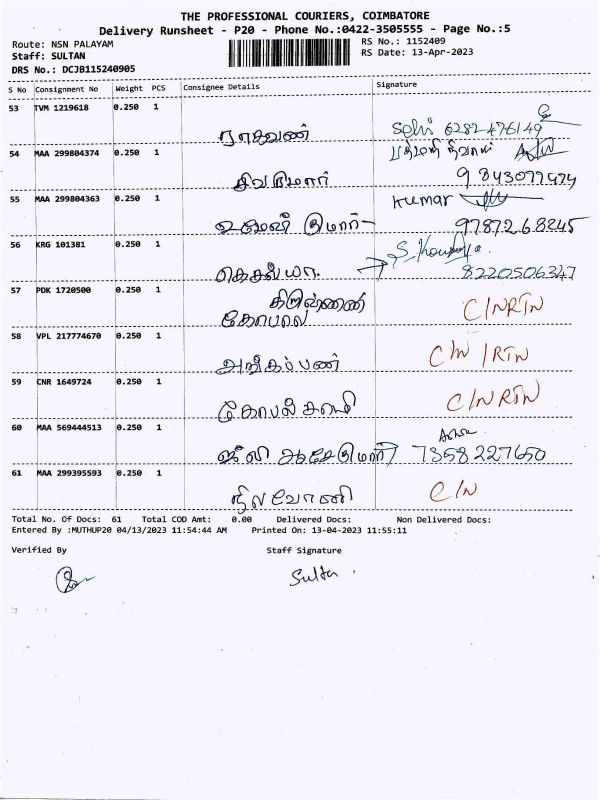 THE PROFESSIONAL COURIERS, COIMBATORE
Delivery Runsheet - P20 - Phone No.:0422-3505555 - Page No.:5
Route: NSN PALAYAM RS No.: 1152409
Staff: SULTAN RS Date: 13-Apr-2023
DRS No.: DCJB115240905
S No Consignment No Weight PCS Consignee Details Signature
53 TVM 1219618 0.250 1
ராகவன் 6282476149
54 MAA 299804374 0.250 1
சிவகுமார் 9843077474
55 MAA 299804363 0.250 1 Kumar
குமார் 9787268245
56 KRG 101381 0.250 1 S.
கௌசல்யா 8220506347
57 PDK 1720500 0.250 1
கோபால் C/NRTN
58 VPL 217774670 0.250 1
C/N/RTN
59 CNR 1649724 0.250 1
C/NRTN
60 MAA 569444513 0.250 1
7358227650
61 MAA 299395593 0.250 1
நிலவோணி C/N
Total No. Of Docs: 61 Total COD Amt: 0.00 Delivered Docs: Non Delivered Docs:
Entered By :MUTHUP20 04/13/2023 11:54:44 AM Printed On: 13-04-2023 11:55:11
Verified By Staff Signature
Sulta